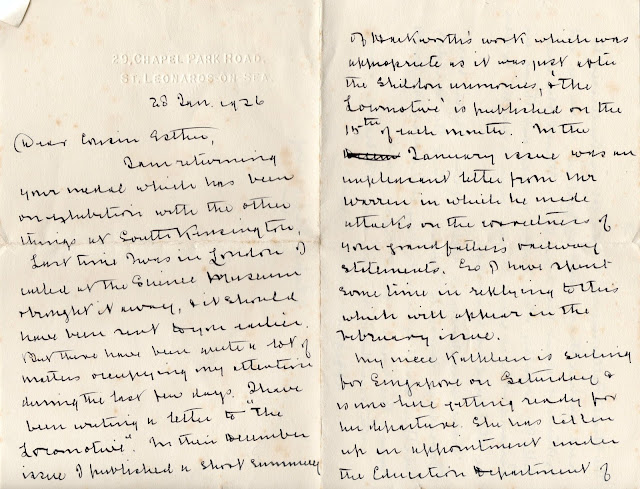 29, CHAPEL PARK ROAD,
ST. LEONARDS-ON-SEA.
28 Jan. 1926
Dear Cousin Esther,
I am returning
your medal which has been
on exhibition with the other
things at South Kensington.
Last time I was in London I
called at the Science Museum
& brought it away, & it should
have been sent to you earlier.
But there have been quite a lot of
matters occupying my attention
during the last few days. I have
been writing a letter to "The
Locomotive". In their December
issue I published a short summary
of Hackworth's work which was
appropriate as it was just after
the Shildon memories, & "the
Locomotive" is published on the
15th of each month. In the
January issue was an
unpleasant letter from Mr
Warren in which he made
attacks on the correctness of
your grandfather's railway
statements. So I have spent
some time in replying to this
which will appear in the
February issue.
My niece Kathleen is sailing
for Singapore on Saturday &
is now here getting ready for
her departure. She has taken
up an appointment under
the Education Department of